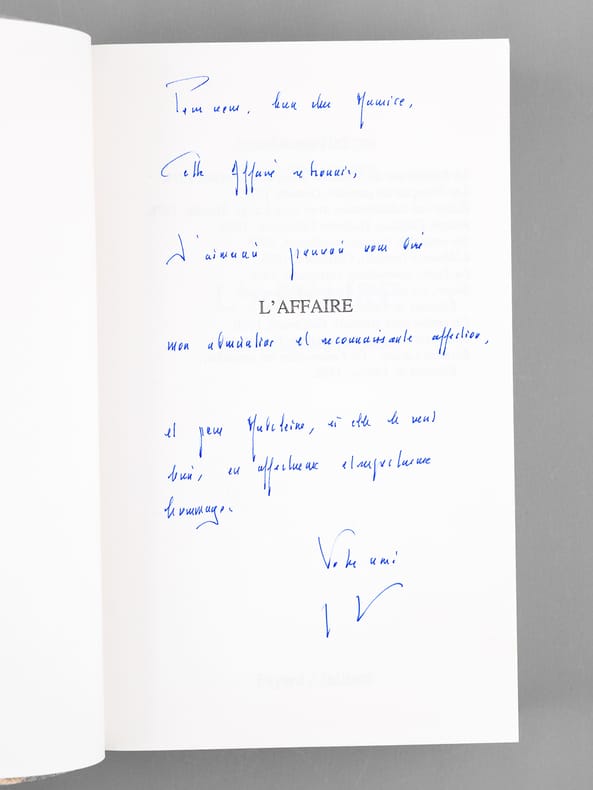 Pour vous, bien cher Maurice,
Cette Affaire
J'aimerais pouvoir vous dire
L'AFFAIRE
mon admiration et reconnaissante affection,
et pour si elle le veut
bien, en affectueux et respectueux
hommage.
Votre ami